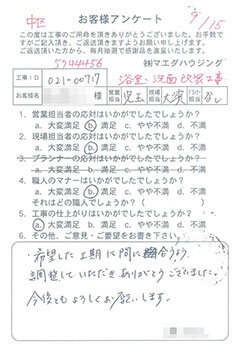 中区
お客様アンケート
9/15
この度は工事のご用命を頂きありがとうございました。お手数で
すがご記入頂き、ご返送頂きますようお願い申し上げます。
ご返送頂いた方から、毎月抽選で感謝品を進呈いたします。
5744456
㈱マエダハウジング
工事ID
021-00717
浴室・洗面改装工事
お客様名
様
営業担当
児玉
現場担当
大濱
なし
1. 営業担当者の応対はいかがでしたでしょうか？
a. 大変満足 b. 満足 c. やや不満 d. 不満
2. 現場担当者の応対はいかがでしたでしょうか？
a. 大変満足 b. 満足 c. やや不満 d. 不満
3. プランナーの応対はいかがでしたでしょうか？
a. 大変満足 b. 満足 c. やや不満 d. 不満
4. 職人のマナーはいかがでしたでしょうか？
a. 大変満足 b. 満足 c. やや不満 d. 不満
それはどの職人でしょうか？（ ）
5. 工事の仕上がりはいかがでしたでしょうか？
a. 大変満足 b. 満足 c. やや不満 d. 不満
6. その他、ご意見・ご要望をお書き下さい。
希望した工期に間に合うよう、
調整していただきありがとうございました。
今後ともよろしくお願いします。